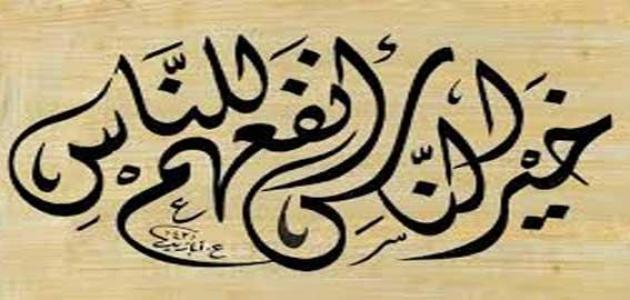 خَيْرُ النَّاسِ أَنفَعُهُم لِلنَّاسِ